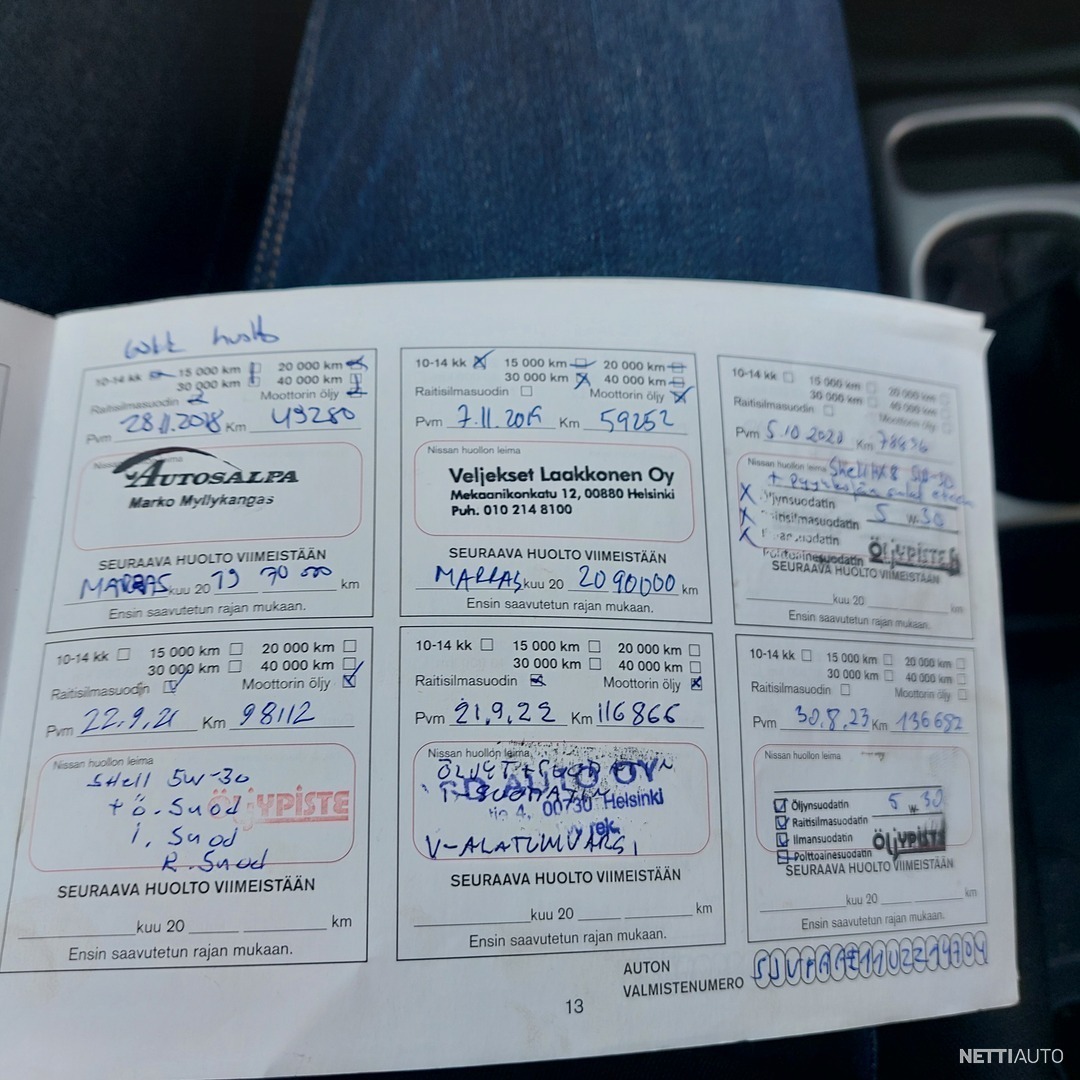 huolto
10-14 kk 15 000 km 20 000 km
30 000 km 40 000 km
Raitisilmasuodin Moottorin öljy
Pvm 28.11.2018 Km 49280
Nissan
AUTOSALPA
Marko Myllykangas
SEURAAVA HUOLTO VIIMEISTÄÄN
MARRAS kuu 20 19 70 000 km
Ensin saavutetun rajan mukaan.
10-14 kk 15 000 km 20 000 km
30 000 km 40 000 km
Raitisilmasuodin Moottorin öljy
Pvm 7.11.2019 Km 59252
Nissan huollon leima
Veljekset Laakkonen Oy
Mekaanikonkatu 12, 00880 Helsinki
Puh. 010 214 8100
SEURAAVA HUOLTO VIIMEISTÄÄN
MARRAS kuu 20 20 90000 km
Ensin saavutetun rajan mukaan.
10-14 kk 15 000 km 20 000 km
30 000 km 40 000 km
Raitisilmasuodin Moottorin öljy
Pvm 5.10.2020 Km
Nissan huollon leima Shell HX8
Öljynsuodatin 5 w 30
Raitisilmasuodatin
Polttoainesuodatin ÖljyPISTE
SEURAAVA HUOLTO VIIMEISTÄÄN
kuu 20 km
Ensin saavutetun rajan mukaan.
10-14 kk 15 000 km 20 000 km
30 000 km 40 000 km
Raitisilmasuodin Moottorin öljy
Pvm 22.9.21 Km 98112
Nissan huollon leima
Shell 5W-30
+ ö. Suod ÖljyPISTE
i. Suod
R. Suod
SEURAAVA HUOLTO VIIMEISTÄÄN
kuu 20 km
Ensin saavutetun rajan mukaan.
10-14 kk 15 000 km 20 000 km
30 000 km 40 000 km
Raitisilmasuodin Moottorin öljy
Pvm 21.9.22 Km 116866
Nissan huollon leima
AUTO OY
4, 00730 Helsinki
V-ALATUKIVARSI
SEURAAVA HUOLTO VIIMEISTÄÄN
kuu 20 km
Ensin saavutetun rajan mukaan.
10-14 kk 15 000 km 20 000 km
30 000 km 40 000 km
Raitisilmasuodin Moottorin öljy
Pvm 30.8.23 Km 136682
Nissan huollon leima
Öljynsuodatin 5 w 30
Raitisilmasuodatin
Ilmansuodatin ÖljyPISTE
Polttoainesuodatin
SEURAAVA HUOLTO VIIMEISTÄÄN
kuu 20 km
Ensin saavutetun rajan mukaan.
AUTON
VALMISTENUMERO
13
NETTIAUTO